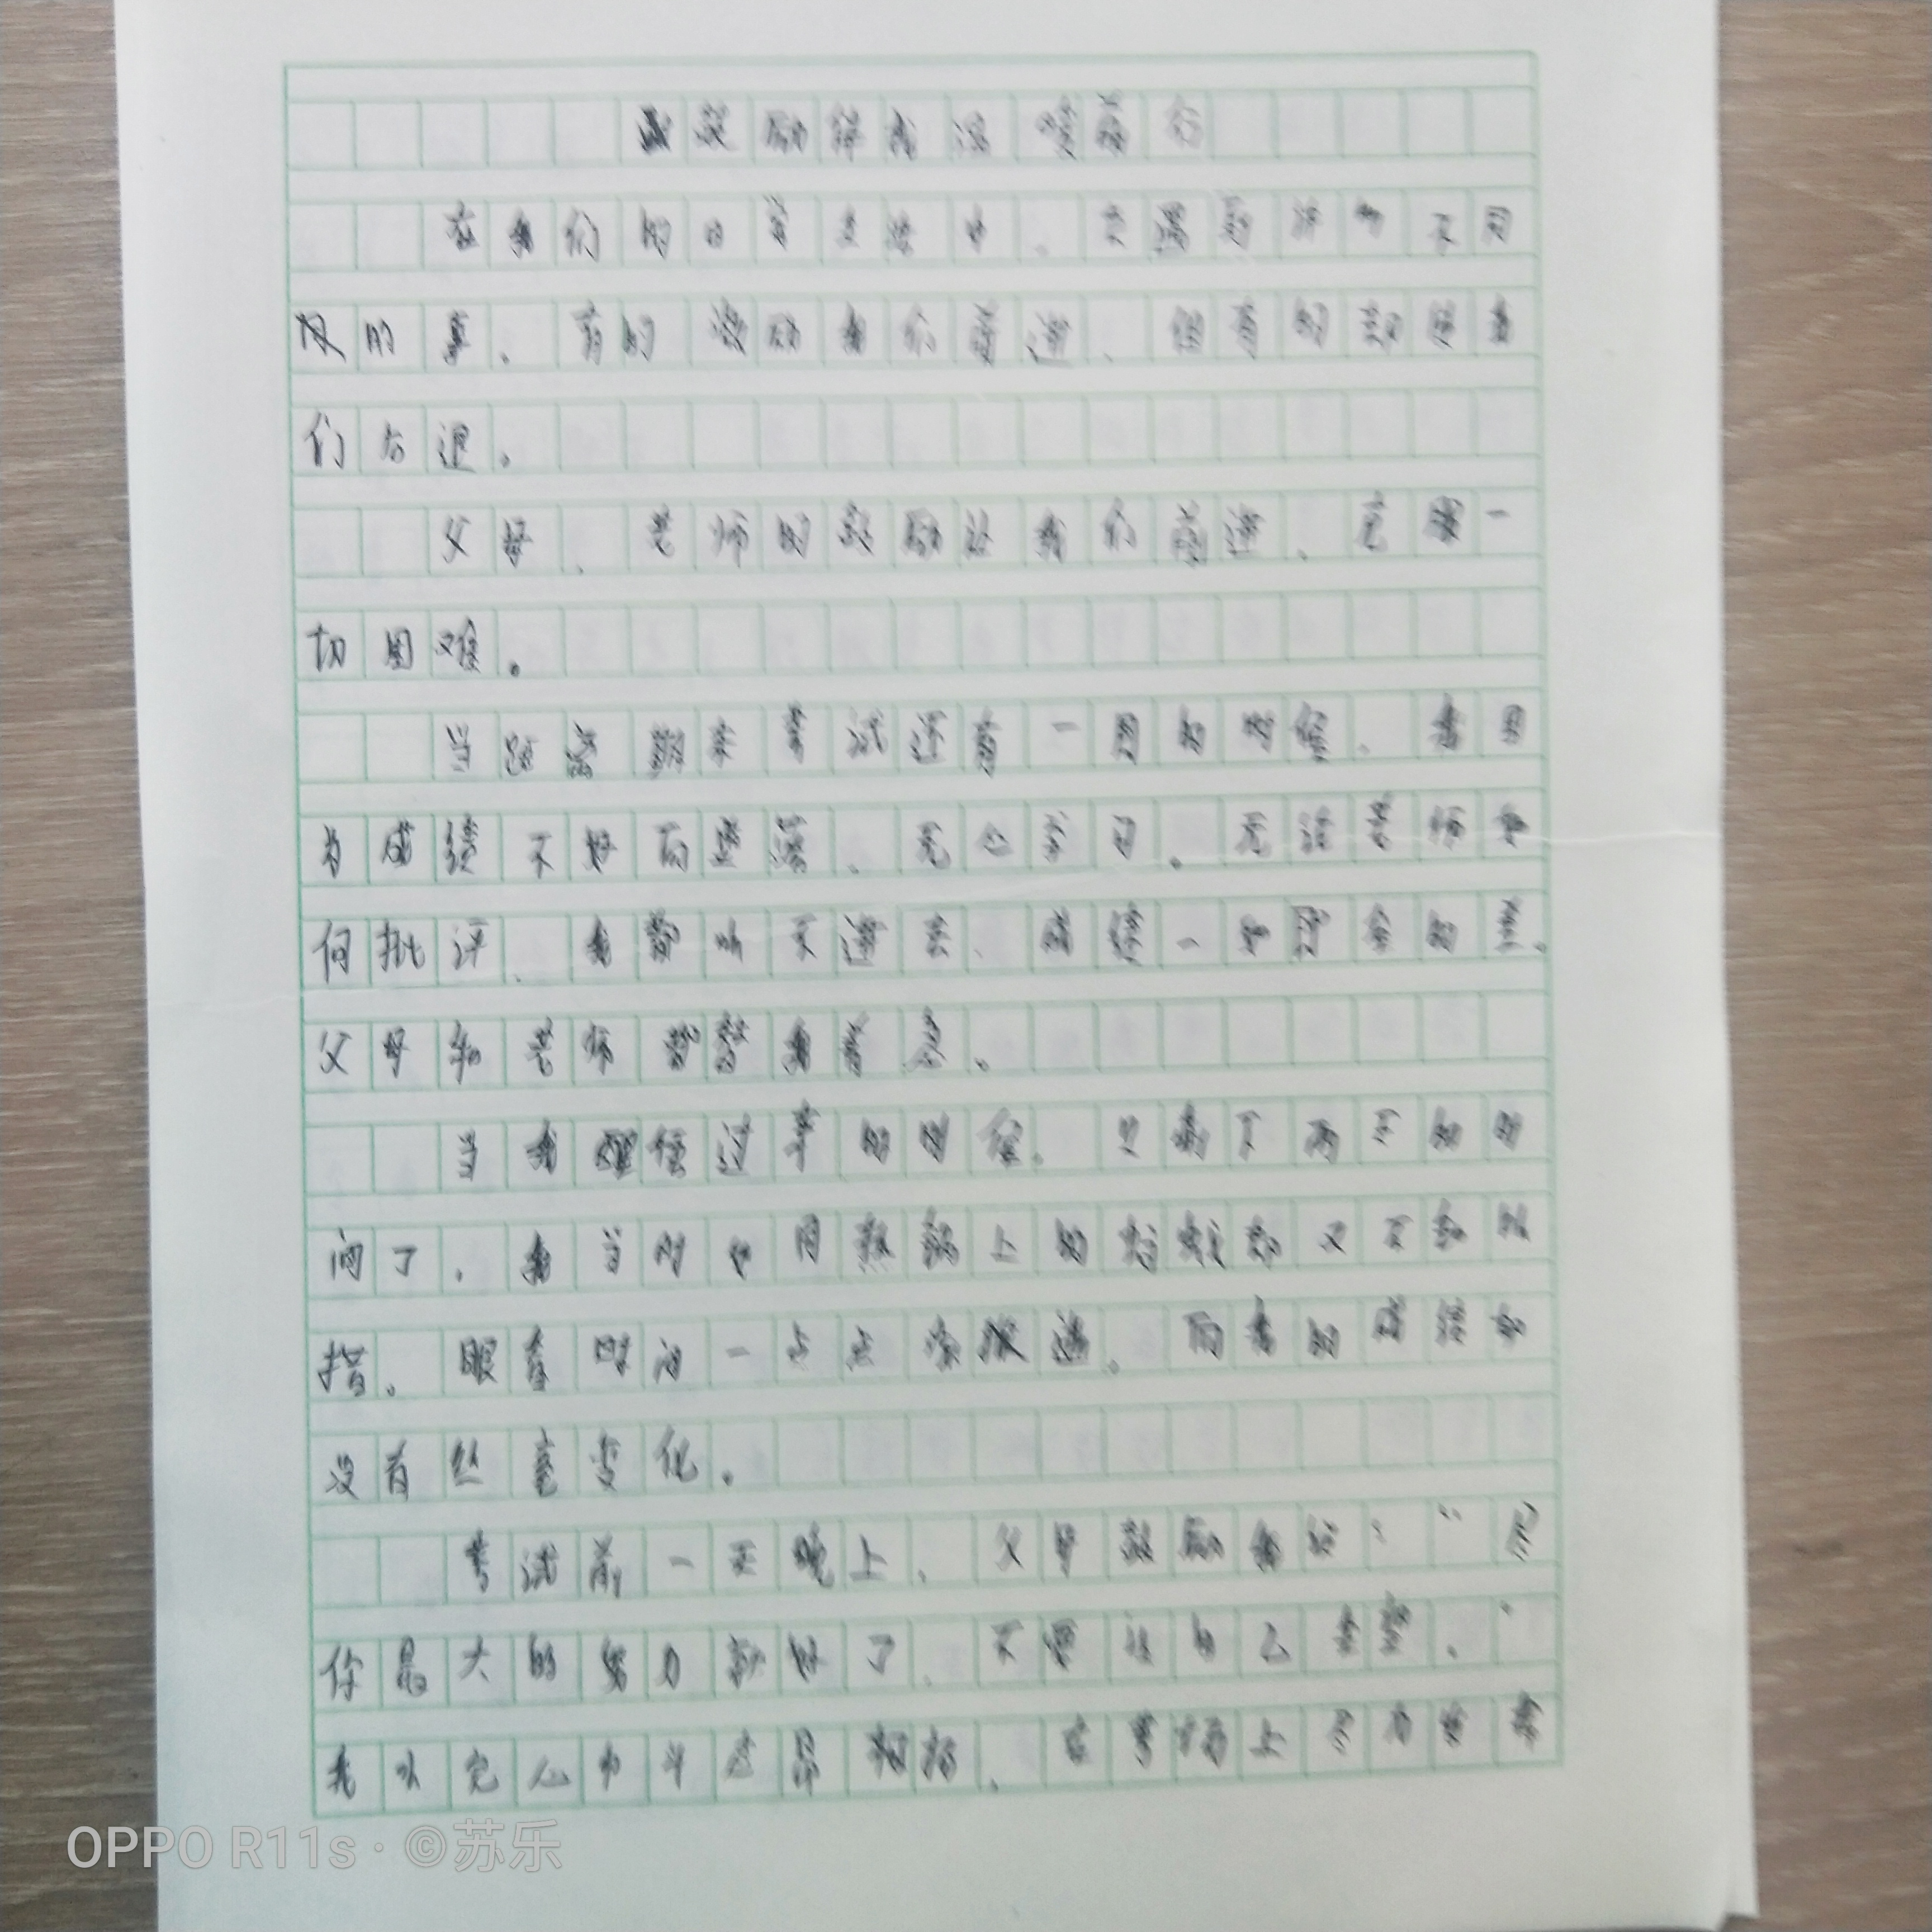 鼓励伴我 前行
在我们的日常生活中,会遇到许多不同
的事,有的激励我们前进,但有的却使我
们后退。
父母、老师的鼓励让我们前进,克服一
切困难。
当距离期末考试还有一周的时候,我因
为成绩不好而堕落,无心学习。无论老师如
何批评,我都听不进去,成绩一如既往的差。
父母和老师都替我着急。
当我醒悟过来的时候,只剩下两天的时
间了,我当时如同热锅上的蚂蚁却又不知所
措。眼看时间一点点流逝,而我的成绩却
没有丝毫变化。
考试前一天晚上,父母鼓励我说:“尽
你最大的努力就好了,不要让自己失望。”
我以 斗志昂扬,在考场上尽力发挥
OPPO R11s · ©苏乐